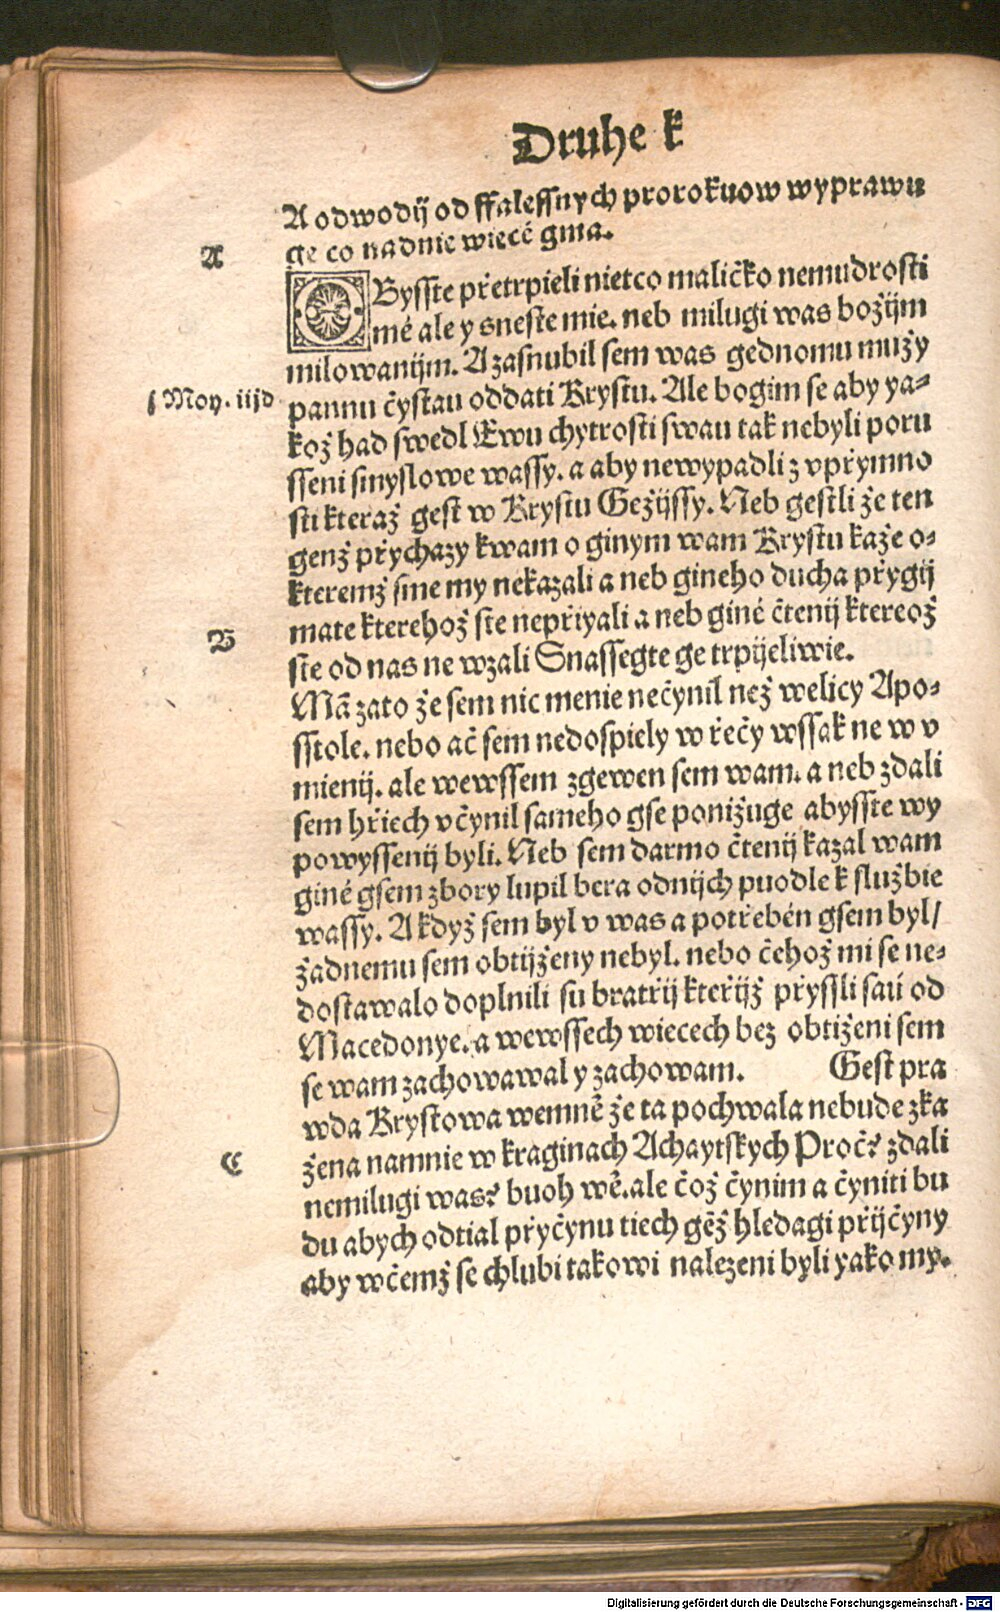 Druhe k
A odwodij od ffalessnych prorokuow wyprawu
ge co nadnie wiecé gma.
A
O Bysste přetrpieli nietco maličko nemudrosti
mé ale y sneste mie. neb milugi was božijm
milowanijm. A zasnubil sem was gednomu mužy
j Moy. iij d
pannu čystau oddati Krystu. Ale bogim se aby ya⸗
kož had swedl Ewu chytrosti swau tak nebyli poru
sseni smyslowe wassy. a aby newypadli z vprymno
sti kteraž gest w Krystu Gežijssy. Neb gestli že ten
genž přychazy kwam o ginym wam Krystu kaže o⸗
kteremž sme my nekazali a neb gineho ducha přygij
mate kterehož ste nepřiyali a neb giné čtenij ktereož
B
ste od nas ne wzali Snassegte ge trpijeliwie.
Mã zato že sem nic menie nečynil než welicy Apo⸗
sstole. nebo ač sem nedospiely w řečy wssak ne w v
mienij. ale wewssem zgewen sem wam. a neb zdali
sem hřiech včynil sameho gse ponižuge abysste wy
powyssenij byli. Neb sem darmo čtenij kazal wam
giné gsem zbory lupil bera odnijch puodle k službie
wassy. A když sem byl v was a potřebén gsem byl/
žadnemu sem obtijženy nebyl. nebo čehož mi se ne⸗
dostawalo doplnili su bratřij kteřijž přyssli saú od
Macedonye. a wewssech wiecech bez obtiženi sem
se wam zachowawal y zachowam. Gest pra
wda Krystowa wemně že ta pochwala nebude zka
C
žena namnie w kraginach Achaytskych Proč? zdali
nemilugi was? buoh wě. ale čož čynim a čyniti bu
du abych odtial přyčynu tiech gěž hledagi přijčyny
aby wčemž se chlubi takowi nalezeni byli yako my.
Digitalisierung gefördert durch die Deutsche Forschungsgemeinschaft - DFG